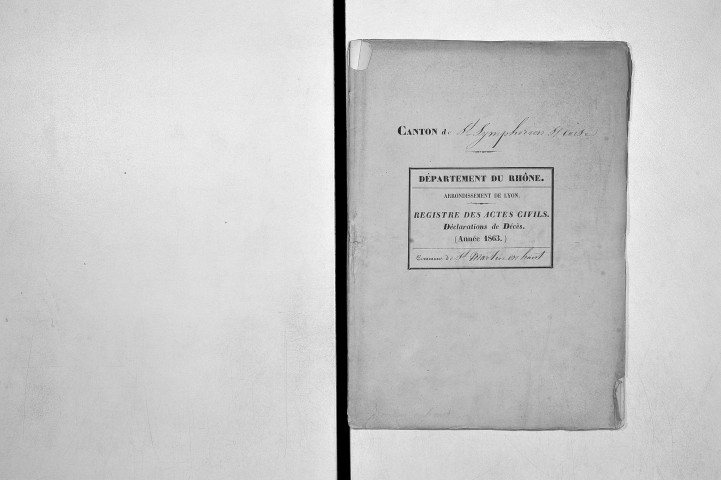 CANTON de St Symphorien s/ Coise
DÉPARTEMENT DU RHÔNE.
ARRONDISSEMENT DE LYON.
REGISTRE DES ACTES CIVILS.
Déclarations de Décès.
(Année 1863.)
Commune de St Martin en haut